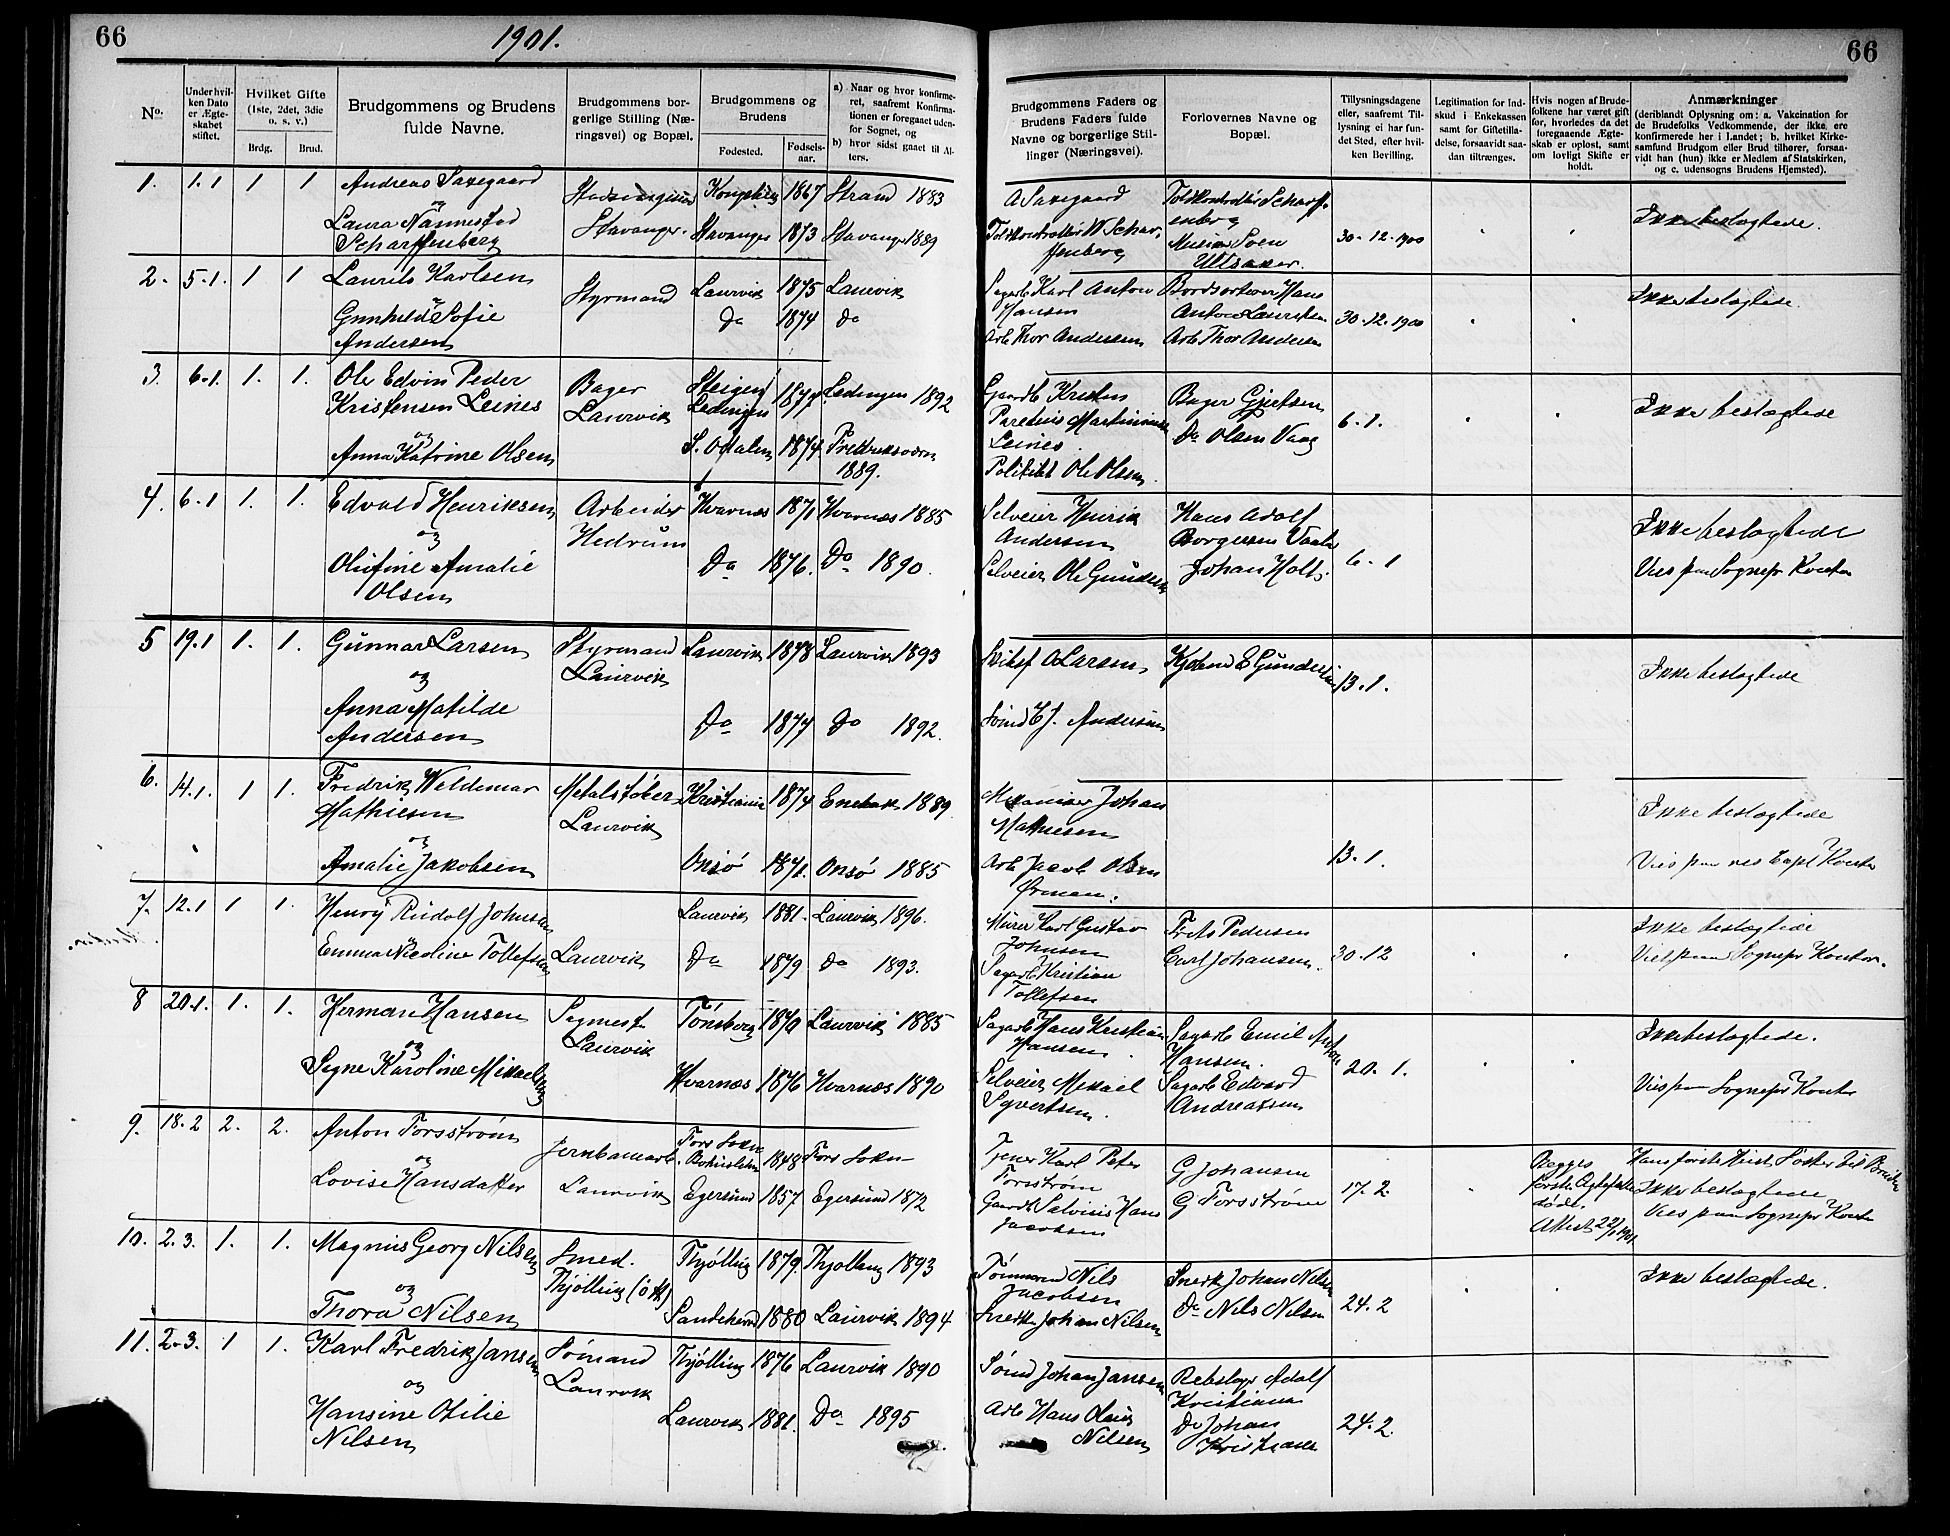 66
1901.
66
No.
Under hvil-
ken Dato
er Ægte-
skabet
stiftet.
Hvilket Gifte
(1ste, 2det, 3die
o. s. v.)
Brdg.
Brud.
Brudgommens og Brudens
fulde Navne.
Brudgommens bor-
gerlige Stilling (Næ-
ringsvei) og Bopæl.
Brudgommens og
Brudens
Fødested.
Fødsels-
aar.
a) Naar og hvor konfirme-
ret, saafremt Konfirma-
tionen er foregaaet uden-
for Sognet, og
b) hvor sidst gaaet til Al-
ters.
Brudgommens Faders og
Brudens Faders fulde
Navne og borgerlige Stil-
linger (Næringsvei).
Forlovernes Navne og
Bopæl.
Tillysningsdagene
eller, saafremt Til-
lysning ei har fun-
det Sted, efter hvil-
ken Bevilling.
Legitimation for Ind-
skud i Enkekassen
samt for Giftetilla-
delse, forsaavidt saa-
dan tiltrænges.
Hvis nogen af Brude-
folkene har været gift
før, hvorledes da det
foregaaende Ægte-
skab er opløst, samt
om lovligt Skifte er
holdt.
Anmærkninger
(deriblandt Oplysning om: a. Vakcination for
de Brudefolks Vedkommende, der ikke ere
konfirmerede her i Landet; b. hvilket Kirke-
samfund Brudgom eller Brud tilhører, forsaa-
vidt han (hun) ikke er Medlem af Statskirken,
og c. udensogns Brudens Hjemsted).
1. 1.1 1 1 Andreas Saxegaard 1867 Strand 1883
og
Laura Nannestad Stavanger. Stavanger 1873 Stavanger 1889
Scharffenberg
A Saxegaard Toldkontrollør Scharff-
enberg
Toldkontrollør W Schar-
ffenberg
Ullsaker.
30-12-1900
Ikke beslægtede.
2. 5.1. 1 1 Laurits Karlsen Styrmand Laurvik 1875 Laurvik
og
Gunhild Sofie Do 1874 Do
Andersen
Sagarb Karl Anton
Hansen
Arb Thor Andersen
Hans
Anton Lauritsen
Arb Thor Andersen
30.12.1900
Ikke beslægtede
3. 6.1. 1. 1. Ole Edvin Peder Bager Steigen 1877 Lødingen 1892
Kristensen Leines Laurvik Lødingen
og
Anna Katrine Olsen S. Odalen 1874 Fredriksværn
1889.
Gaardb Kristen
Leines
Politibt Ole Olsen
Bager Gjertsen
Do Olsen Vaag
6.1.
Ikke beslægtede
4. 6.1 1. 1. Edvald Henriksen Arbeider Kvarnæs 1871 Kvarnæs 1885
og Hedrum
Olufine Amalie Do 1876. Do 1890.
Olsen
Selveier Henrik
Andersen
Selveier Ole Gunders
Hans Adolf
Borgersen
Johan Holt.
6-1
Ikke beslægtede
Vies paa Sognepr Kontor
5 19.1 1. 1. Gunnar Larsen Styrmand Laurvik 1878 Laurvik 1893
og Laurvik
Anna Matilde Do 1877 Do 1892.
Andersen
O Larsen
Sømd Andersen
Kjøbmd E Gundersen
13.1.
Ikke beslægtede
6. 14.1. 1 1. Fredrik Weldemar Metalstøber Kristiania 1874 Enebak 1889
Mathiesen Laurvik
og
Amalie Jakobsen Onsø 1871. Onsø 1885
Mekaniker Johan
Mathiesen
Arb Jacob Olsen
13.1.
Ikke beslægtede
Vies paa res Capl Kontor
7. 12.1 1 1. Henry Rudolf Johnsen Laurvik 1881. Laurvik 1896.
Emma Nicoline Tollefsen Laurvik Do 1879 Do 1893.
Murer Karl Gustav
Johnsen
Sagarb Kristian
Tollefsen
Frits Pedersen
Carl Johansen.
30.12
Ikke beslægtede
Viet paa Sognepr Kontor.
8 20.1. 1. 1. Herman Hansen Sagmest Tønsberg 1870 Laurvik 1885
og Laurvik
Signe Karoline Mikaelsen Kvarnæs 1876 Kvarnæs 1890
Sagarb Hans Kristian
Hansen
Selveier Mikael
Syvertsen.
Sagarb Emil Anton
Hansen.
Sagarb Edvard
Andreassen
20.1.
Ikke beslægtede.
Vies paa Sognepr Kontor
9. 18.2 2. 2. Anton Forsstrøm Jernbanearb. Fors Sokn 1848 Fors Sokn
og Bohuslehn
Lovise Hansdatter Laurvik Egersund 1857 Egersund 1872
Tjener Karl Peter
Forsstrøm
Hans
Jacobsen
G Johansen
G Forsstrøm
17.2.
Begges
første Ægtefælle
døde.
Attest 22/1 1901.
Hans første Hust Søster til Bruden
Ikke beslægtede
Vies paa Sognepr Kontor
10. 2.3. 1. 1. Magnus Georg Nilsen Smed. Thjølling 1879. Thjølling 1893
og Thjølling
Thora Nilsen Sandeherred 1880 Laurvik 1894
Tømmermd Nils
Jacobsen
Snedker Johan Nilsen
Snedk Johan Nilsen
Do Nils Nilsen
24.2
Ikke beslægtede.
11. 2.3. 1 1. Karl Fredrik Jansen Sømand Thjølling 1876 Laurvik 1890
og Laurvik
Hansine Otilie Laurvik 1881. Do 1895
Nilsen
Sømd Johan Jansen
Arb Hans
Nilsen
Rebslager Adolf
Kristiansen
Do Johan
Kristiansen
24.2.